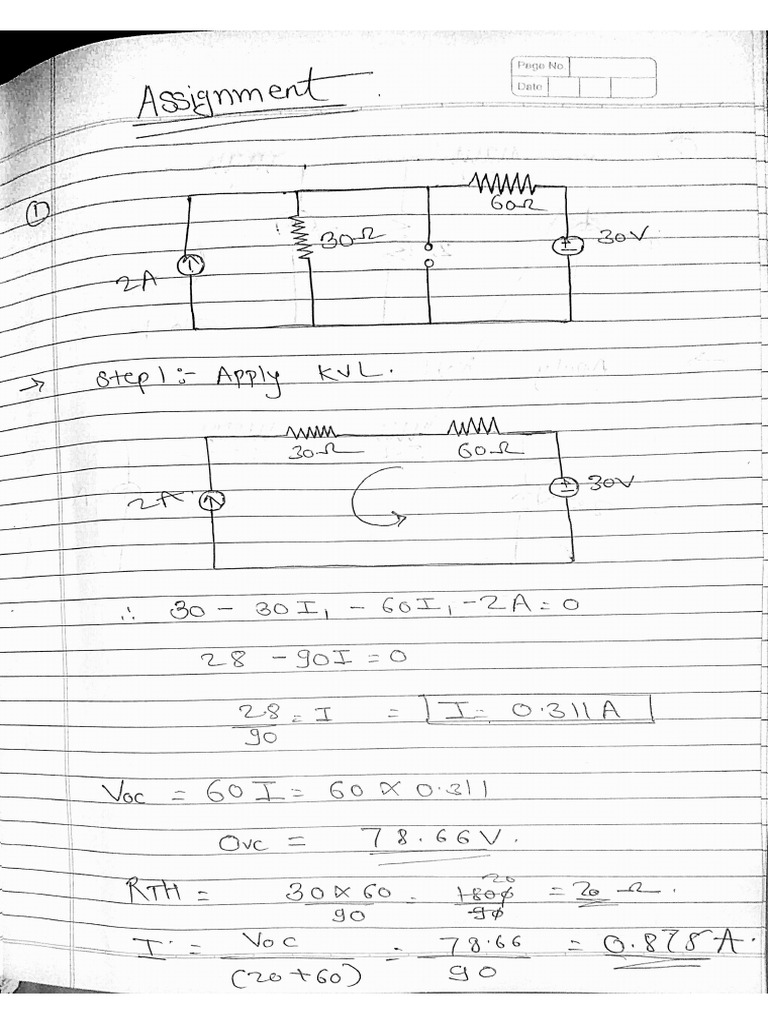 Page No.
Date
Assignment.
①
60Ω
30Ω
30V
2A
→ Step 1:- Apply KVL.
30Ω 60Ω
2A 30V
∴ 30 - 30I₁ - 60I₁ - 2A = 0
28 - 90I = 0
28/90 = I = I = 0.311A
Voc = 60I = 60 × 0.311
Ovc = 78.66V.
RTH = 30×60/90 = 1800/90 20 = 20 Ω.
I = Voc/(20+60) = 78.66/90 = 0.875A.